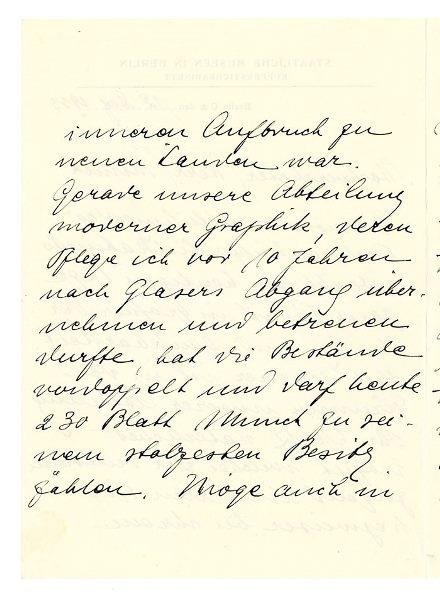 inneren Aufbruch zu
neuen Landen war.
Gerade unsere Abteilung
moderner Graphik, deren
Pflege ich vor 10 Jahren
nach Glasers Abgang über-
nehmen und betreuen
durfte, hat die Bestände
verdoppelt und darf heute
230 Blatt Munch zu sei-
nem stolzesten Besitz
zählen. Möge auch in